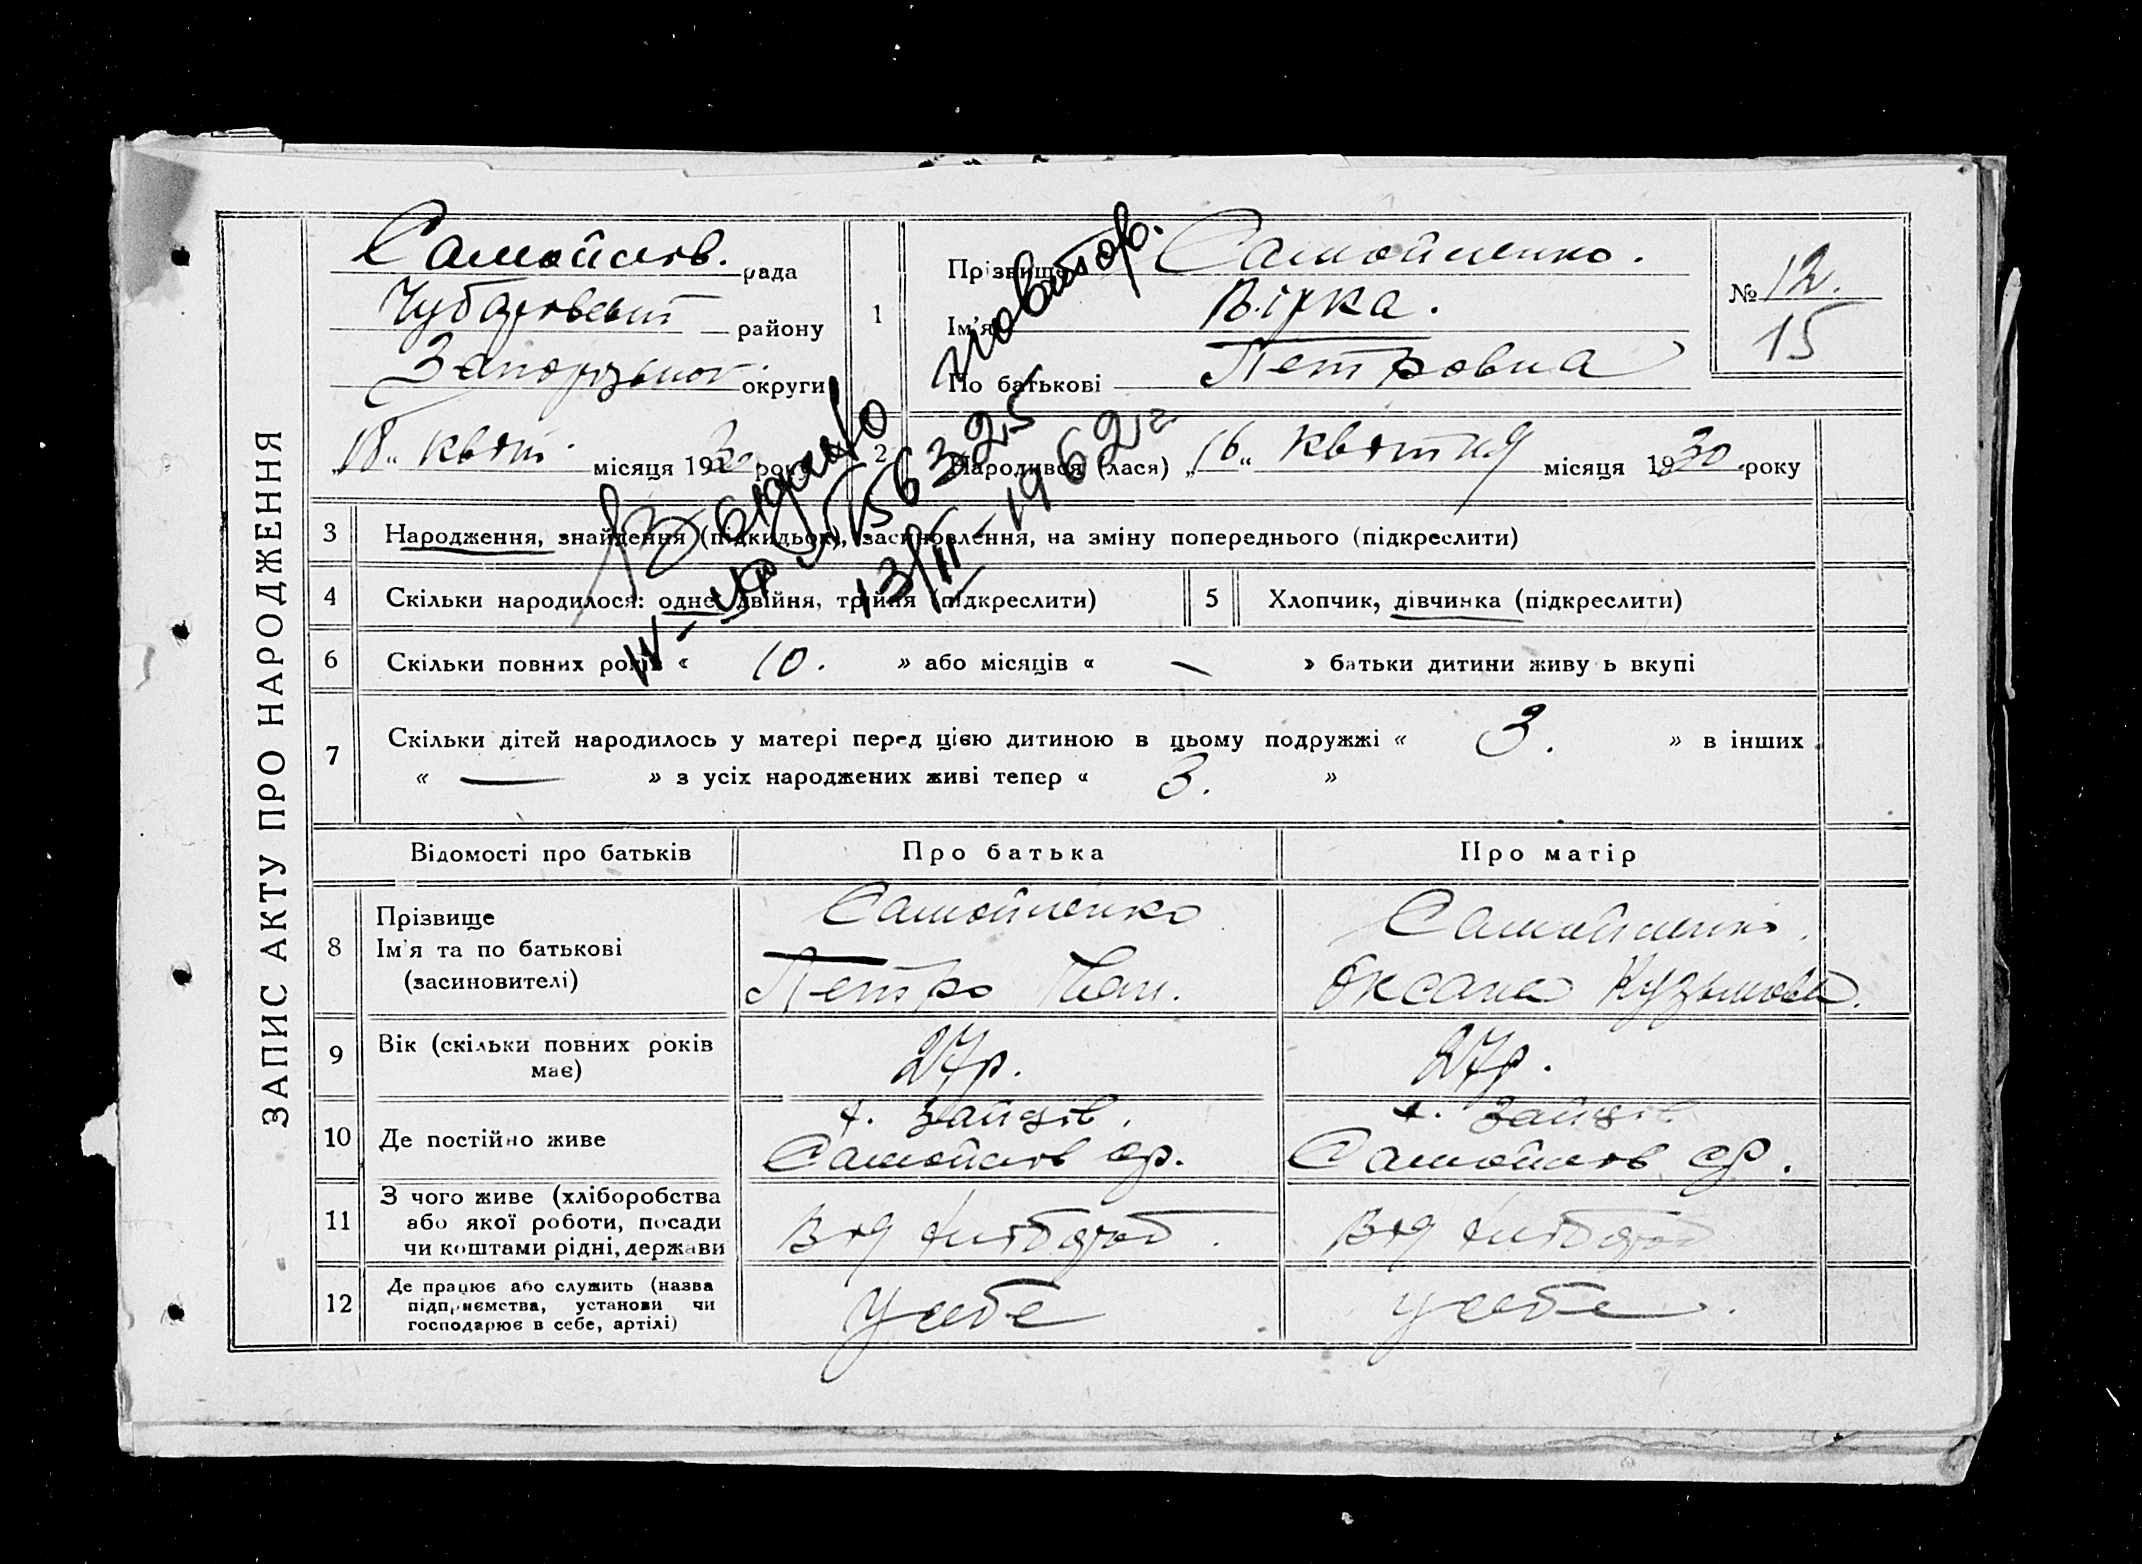 ЗАПИС АКТУ ПРО НАРОДЖЕННЯ
Самойлів. рада
Чубарівськ району
Запорізької округи
"18" квіт. місяця 1930 року
1
Прізвище Самойленко.
Ім'я Вірка.
По батькові Петровна
№ 12.
15
2 Народився (лася) "16" квітня місяця 1930 року
Видано повтор.
IV-УР № 563225
13/II-1962 г
3 Народження, знайдення (підкидьок), засиновлення, на зміну попереднього (підкреслити)
4 Скільки народилося: одне, двійня, трійня (підкреслити)
5 Хлопчик, дівчинка (підкреслити)
6 Скільки повних років « 10. » або місяців « — » батьки дитини живуть вкупі
7 Скільки дітей народилось у матері перед цією дитиною в цьому подружжі « 3. » в інших
« — » з усіх народжених живі тепер « 3. »
Відомості про батьків
Про батька
Про матір
8 Прізвище
Ім'я та по батькові
(засиновителі)
Самойленко
Петро Пан.
Самойленко.
Оксана Кузьмовна.
9 Вік (скільки повних років
має)
27р.
27р.
10 Де постійно живе
х. Зайців.
Самойлів ср.
х. Зайців
Самойлів ср.
11 З чого живе (хліборобства
або якої роботи, посади
чи коштами рідні, держави
Від хлібороб.
Від хлібороб
12 Де працює або служить (назва
підприємства, установи чи
господарює в себе, артілі)
У себе
у себе.